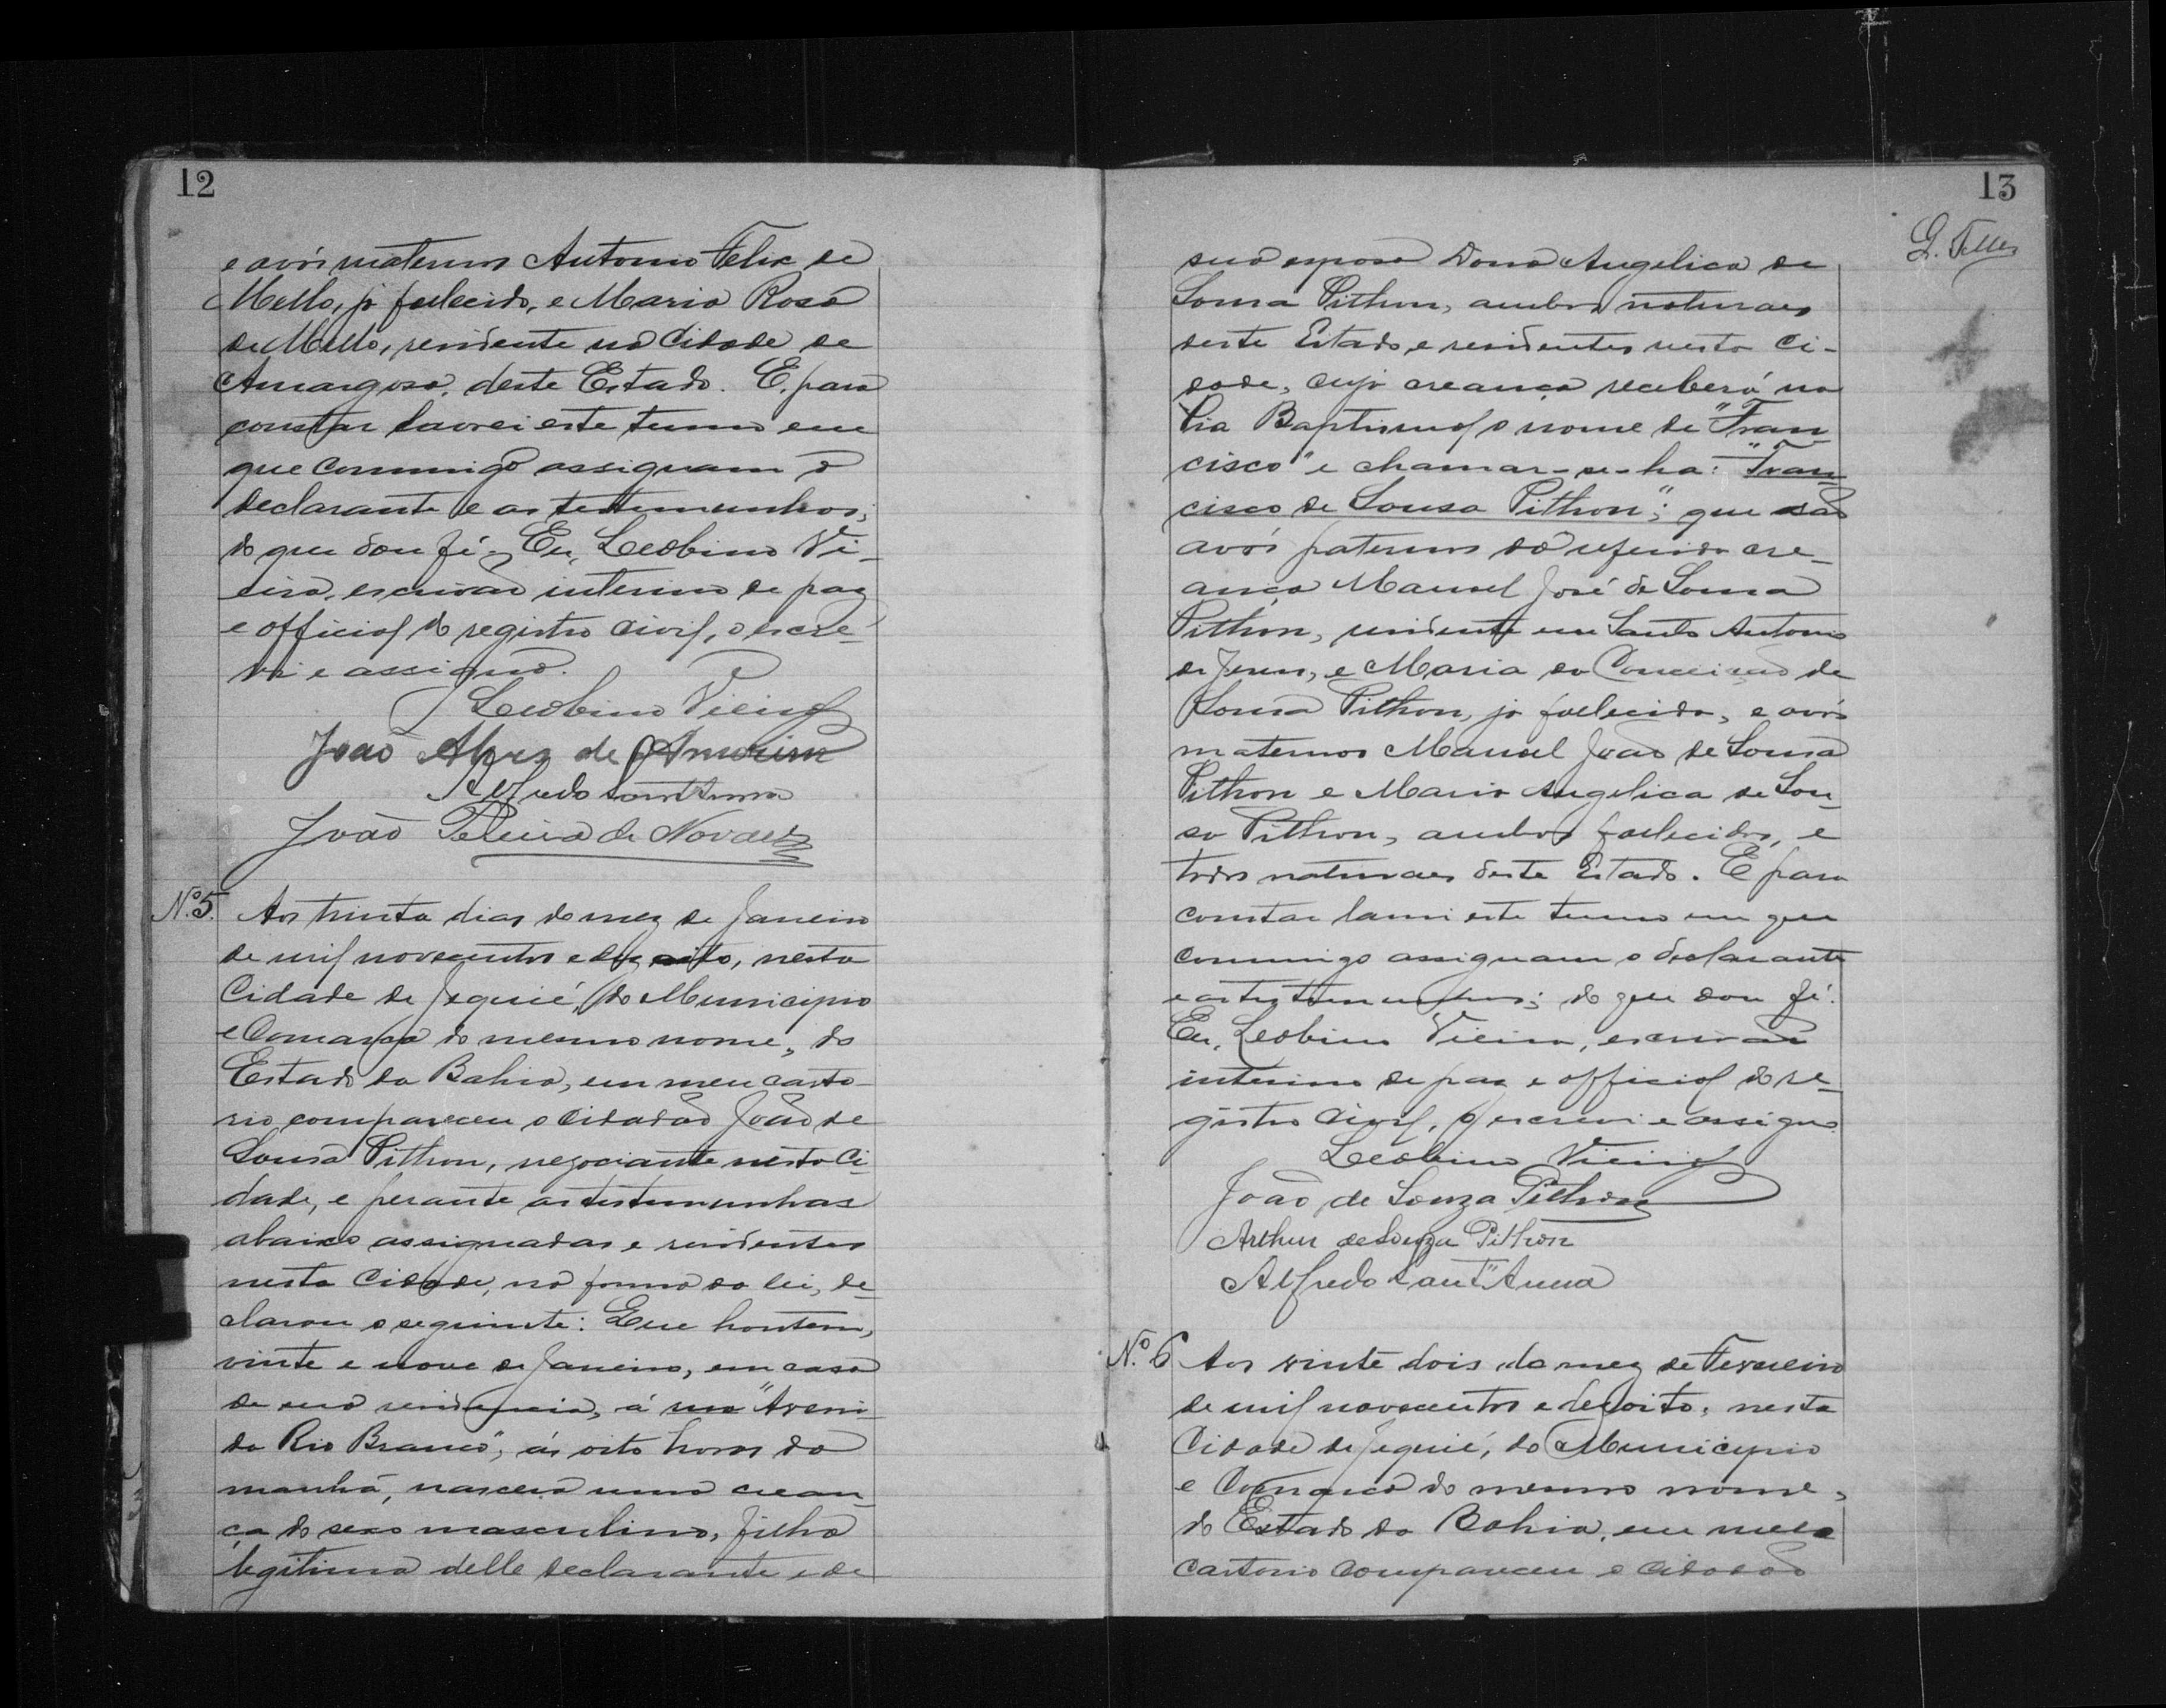 12
e avós maternos Antonio Felix de
Mello, já fallecido, e Maria Rosa
de Mello, residente na Cidade de
Amargosa, deste Estado. E, para
constar lavrei este termo em
que commigo assignam o
declarante e as testemunhas;
do que dou fé. Eu, Leobino Vi-
eira, escrivão interino de paz
e official do registro civil, o escre-
vi e assigno.
Leobino Vieira
João Alves de Amorim
Alfredo Sant'Anna
João Pereira de Novaes
Nº 5. Aos trinta dias do mez de Janeiro
de mil novecentos e dezoito, nesta
Cidade de Jequié, do Municipio
e Comarca do mesmo nome, do
Estado da Bahia, em meu carto-
rio compareceu o cidadão João de
Sousa Pithon, negociante nesta Ci
dade, e perante as testemunhas
abaixo assignadas e residentes
nesta Cidade, na forma da lei, de-
clarou o seguinte: Que hontem,
vinte e nove de Janeiro, em casa
de sua residencia, á rua "Aveni-
da Rio Branco", ás oito horas da
manhã, nasceu uma crean-
ça do sexo masculino, filha
legitima delle declarante e de
13
G. Telles
sua esposa Dona Angelica de
Sousa Pithon, ambos naturaes
deste Estado e residentes nesta Ci-
dade, cuja creança receberá na
Pia Baptismal o nome de "Fran
cisco" e chamar-se-ha: "Fran-
cisco de Sousa Pithon"; que são
avós paternos da referida cre-
ança Manoel José de Sousa
Pithon, residente em Santo Antonio
de Jesus, e Maria da Conceição de
Sousa Pithon, já fallecida, e avós
maternos Manoel João de Sousa
Pithon e Maria Angelica de Sou-
sa Pithon, ambos fallecidos, e
todos naturaes deste Estado. E para
constar lavrei este termo em que
commigo assignam o declarante
e as testemunhas; do que dou fé.
Eu, Leobino Vieira, escrivão
interino de paz e official do re-
gistro civil, o escrevi e assigno.
Leobino Vieira
João de Souza Pithon
Arthur de Souza Pithon
Alfredo Sant'Anna
Nº 6 Aos vinte dois do mez de Fevereiro
de mil novecentos e dezoito, nesta
Cidade de Jequié, do Municipio
e Comarca do mesmo nome,
do Estado da Bahia, em meu
cartorio compareceu o cidadão